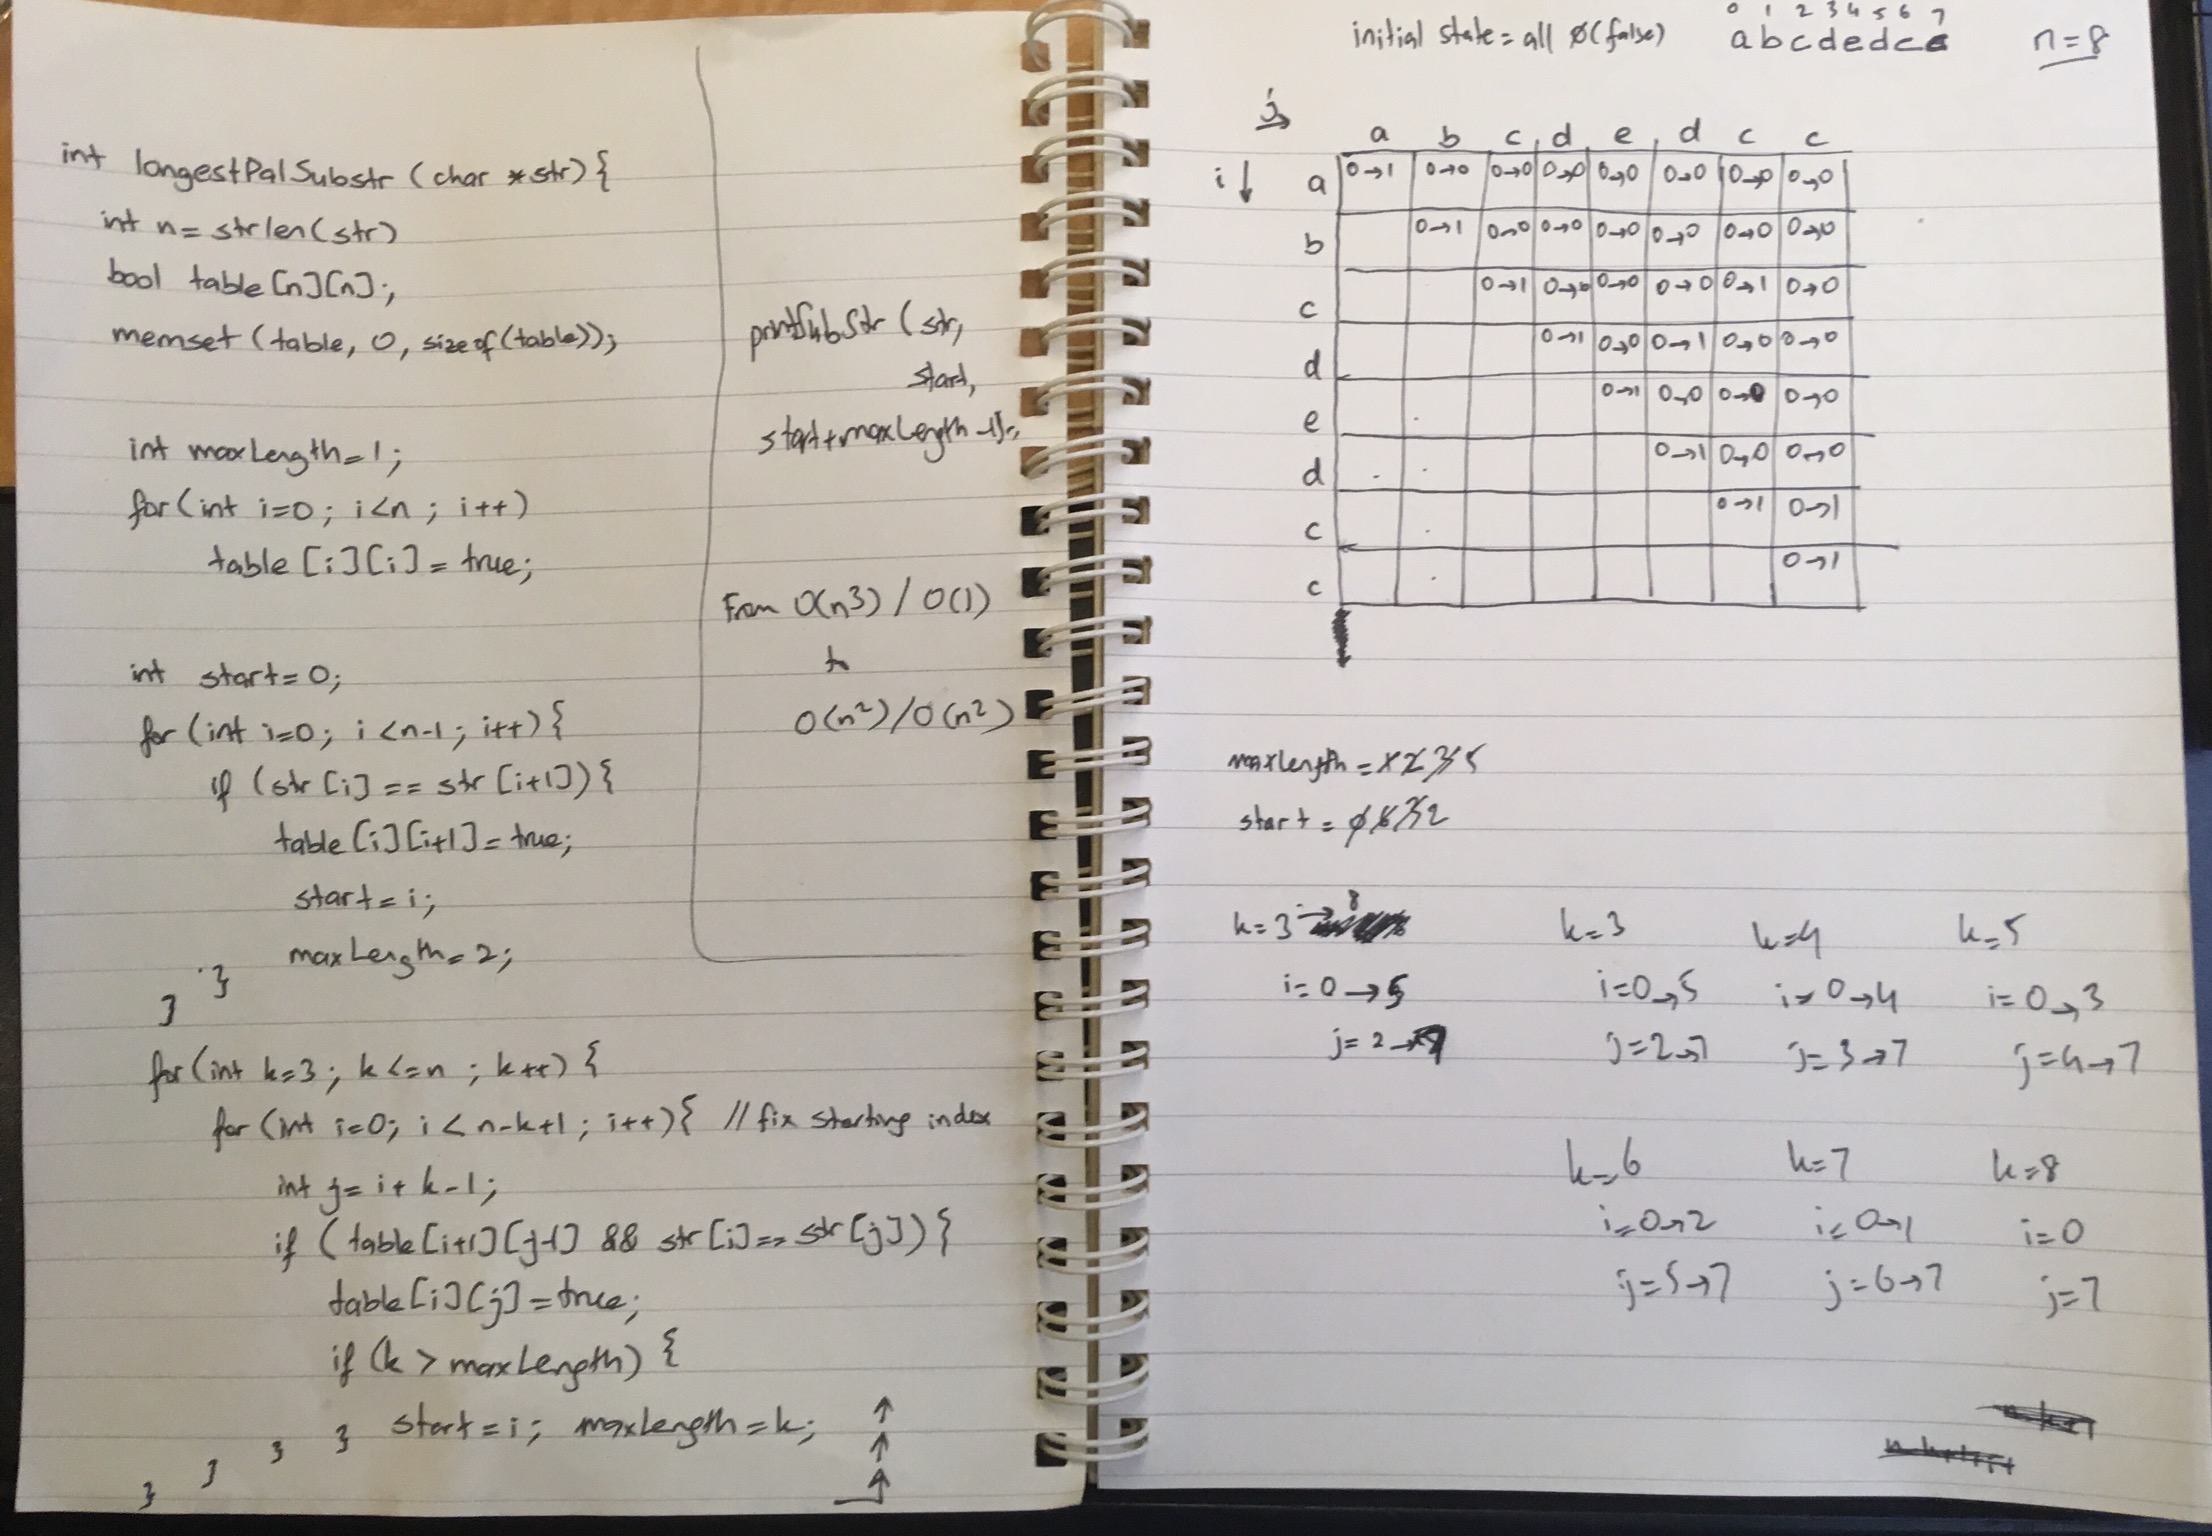 int longestPalSubstr (char *str) {
int n = strlen(str)
bool table [n][n];
memset (table, 0, sizeof(table));
int maxLength = 1;
for (int i=0; i<n ; i++)
table [i][i] = true;
int start = 0;
for (int i=0; i <n-1 ; i++) {
if (str [i] == str [i+1]) {
table [i][i+1] = true;
start = i;
maxLength = 2;
}
}
for (int k=3; k <= n ; k++) {
for (int i=0; i < n-k+1 ; i++) { // fix starting index
int j= i + k-1;
if ( table [i+1][j-1] && str [i] == str [j]) {
table [i][j] = true;
if (k > maxLength) {
start = i; maxLength = k;
}
}
}
}
printSubStr (str,
start,
start+maxLength-1);
From O(n3) / O(1)
to
O(n²)/O(n²)
initial state = all 0 (false) abcdedcc n=8
0 1 2 3 4 5 6 7
j→
a b c d e d c c
i↓ a 0→1 0→0 0→0 0→0 0→0 0→0 0→0 0→0
b 0→1 0→0 0→0 0→0 0→0 0→0 0→0
c 0→1 0→0 0→0 0→0 0→1 0→0
d 0→1 0→0 0→1 0→0 0→0
e 0→1 0→0 0→0 0→0
d 0→1 0→0 0→0
c 0→1 0→1
c 0→1
maxLength = 1 2 3 5
start = 0 6 3 2
k=3 → 8 k=3 k=4 k=5
i=0→5 i=0→5 i=0→4 i=0→3
j=2→7 j=2→7 j=3→7 j=4→7
k=6 k=7 k=8
i=0→2 i=0→1 i=0
j=5→7 j=6→7 j=7